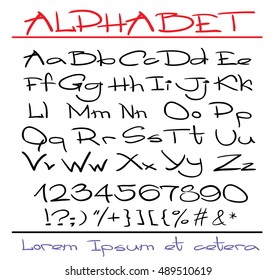 ALPHABET
Aa Bb Cc Dd Ee
Ff Gg Hh Ii Jj Kk
Ll Mm Nn Oo Pp
Qq Rr Ss Tt Uu
Vv Ww Xx Yy Zz
1234567890
!?;,)"/+}][{%/#&*
Lorem Ipsum et cetera
shutterstock.com · 489510619